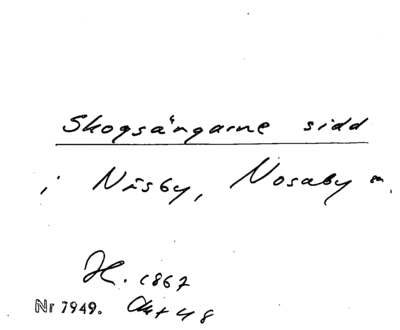 Skogsängarne sidd
i Näsby, Nosaby m.
H. 1867
Nr 7949. Akt 48